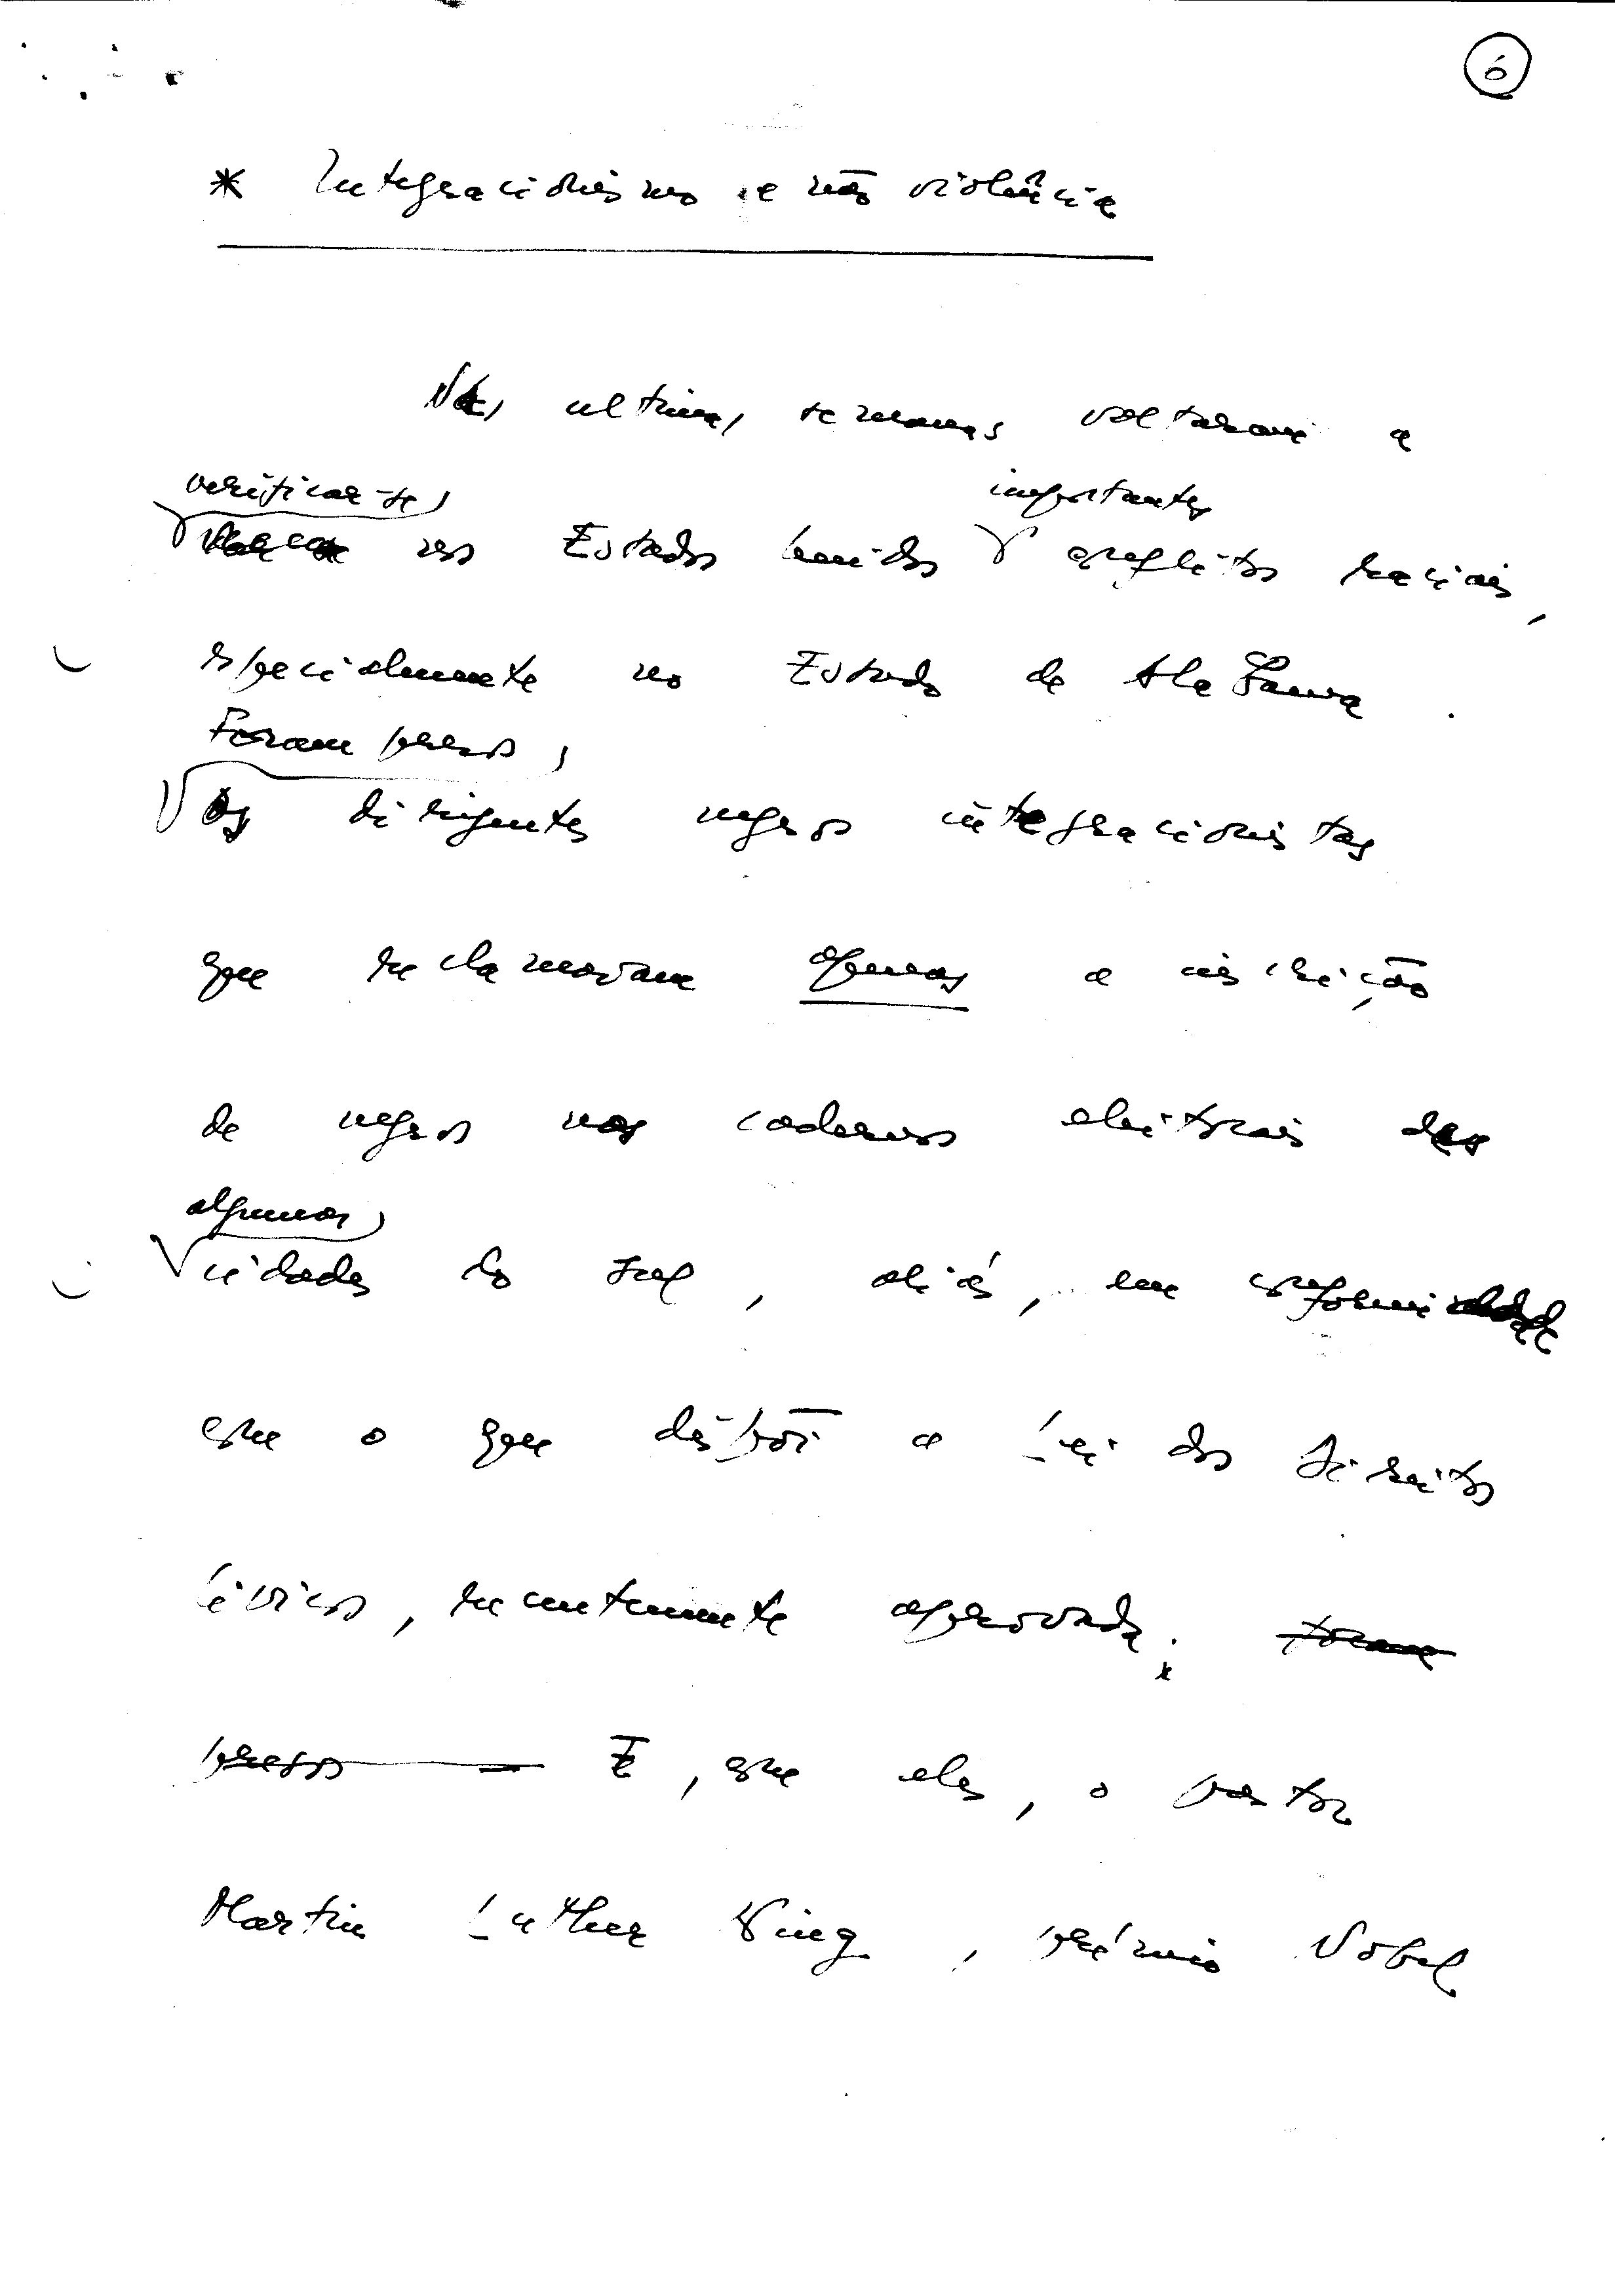 6
* Integracionismo e não violência
Nas ultimas semanas voltaram a
verificar-se importantes
nos Estados Unidos conflitos raciais,
especialmente no Estado de Alabama.
Foram presos
os dirigentes negros integracionistas
que reclamavam apenas a inscrição
de negros nos cadernos eleitorais das
algumas
cidades do sul, aliás, em conformidade
com o que dispõi a Lei dos Direitos
Cívicos, recentemente aprovada; foram
presos E, com eles, o pastor
Martin Luther King, prémio Nobel